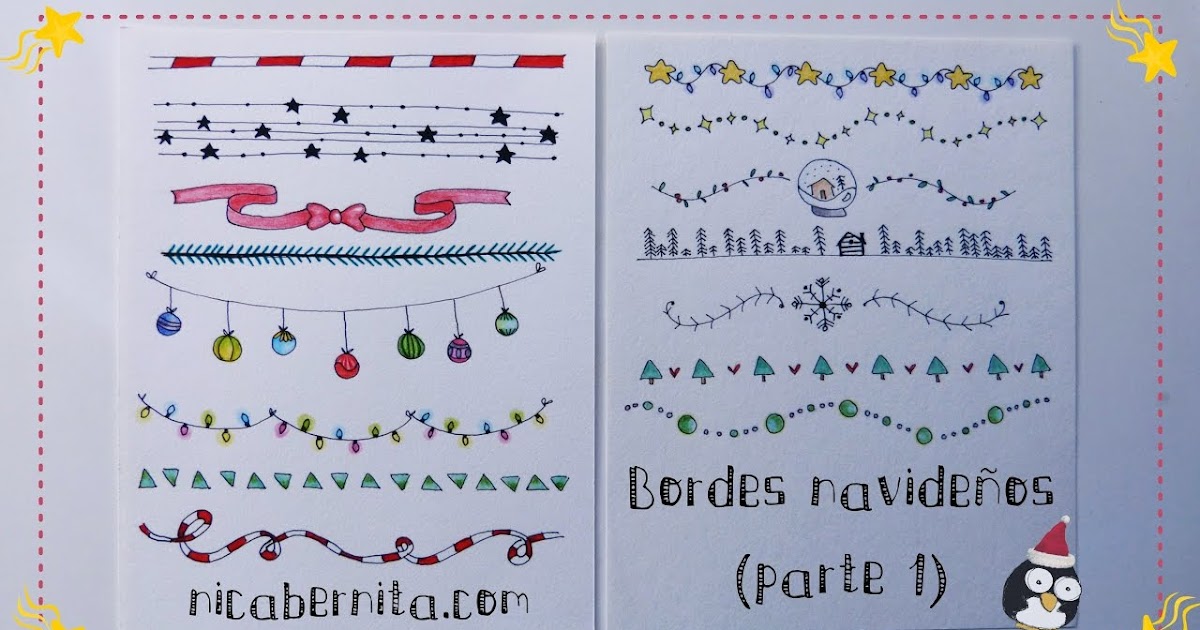 nicabernita.com
Bordes navideños
(parte 1)